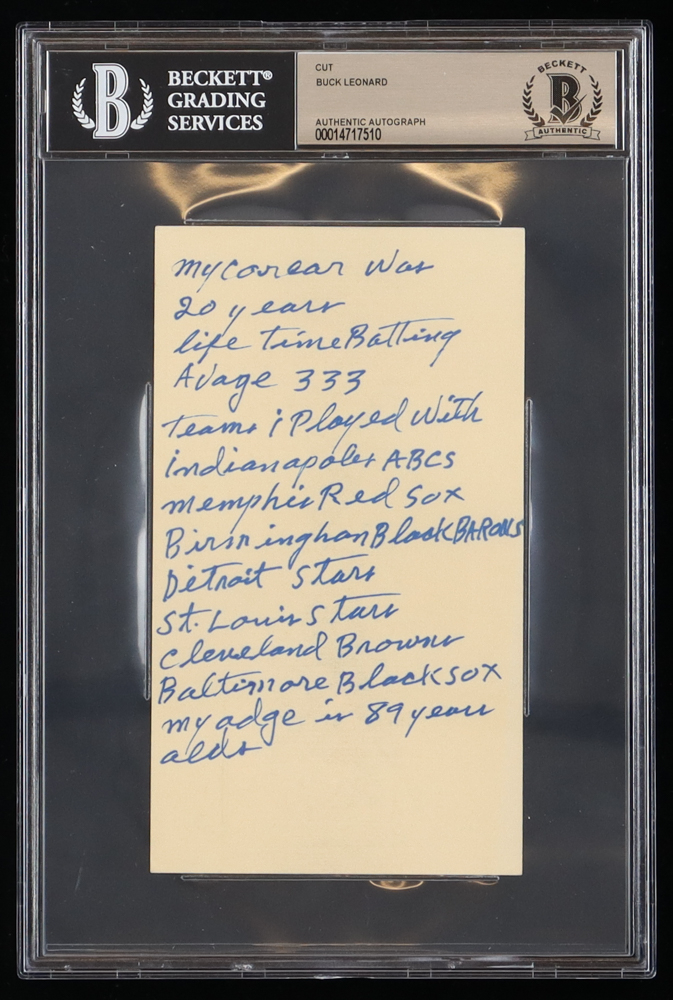 BECKETT®
GRADING
SERVICES
CUT
BUCK LEONARD
AUTHENTIC AUTOGRAPH
00014717510
BECKETT
B
AUTHENTIC
B
my corear was
20 years
life Time Batting
Avage 333
Teams i Played with
indianapoles ABCs
memphis Red Sox
Birminghan Black BARONS
Detroit Stars
St. Louis Stars
Cleveland Browns
Baltimore Black sox
my adge is 89 years
alds